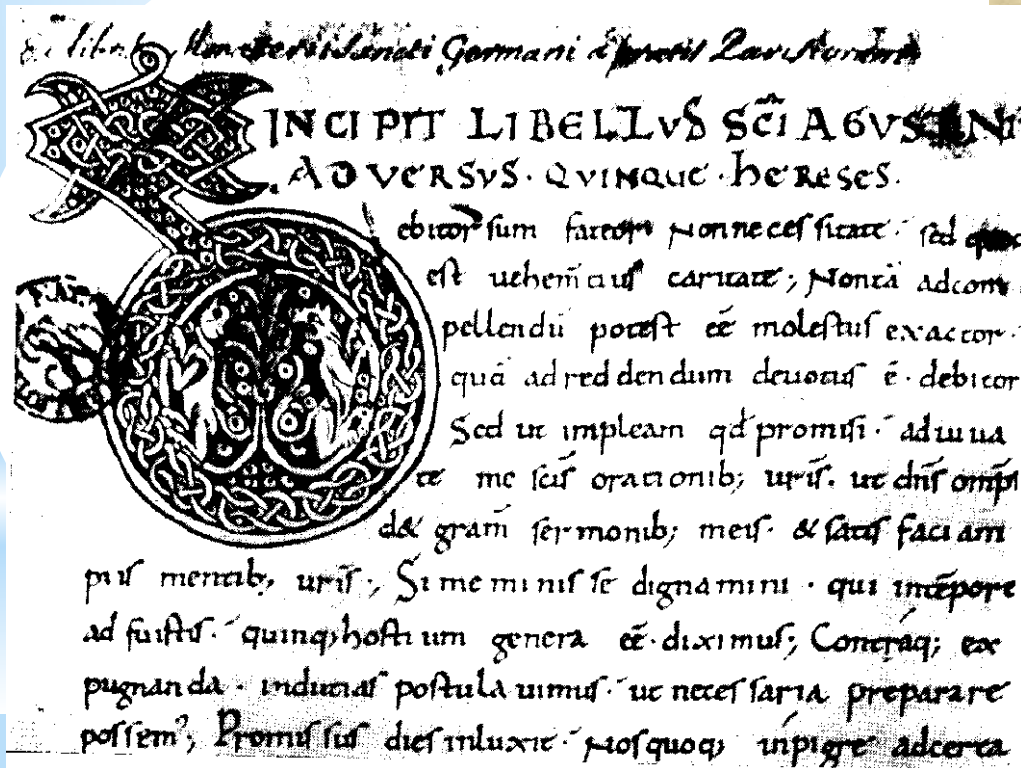 Monasterii Sancti Germani a pratis
INCIPIT LIBELLVS SCI AGVSTINI
ADVERSVS · QVINQUE · hERESES ·
ebitor sum fateor Non necessitate · sed
est uehem̄tius caritate ; Non tā adcom
pellendū potest eē molestus exactor ·
quā ad reddendum deuotus ē · debitor
Sed ut impleam qd promisi · adiuua
te me scīs orationib; urīs · ut dn̄s omp̄s
d& gram̄ sermonib; meis · & satis faciam
piis mentib; urīs ; Si meminisse dignamini · qui in tēpore
adfuistis · quinq; hostium genera eē · diximus ; Contra q; ex
pugnanda · indutias postulauimus · ut necessaria preparare
possem' ; Promissus dies inluxit · Nos quoq; inpigre ad certa